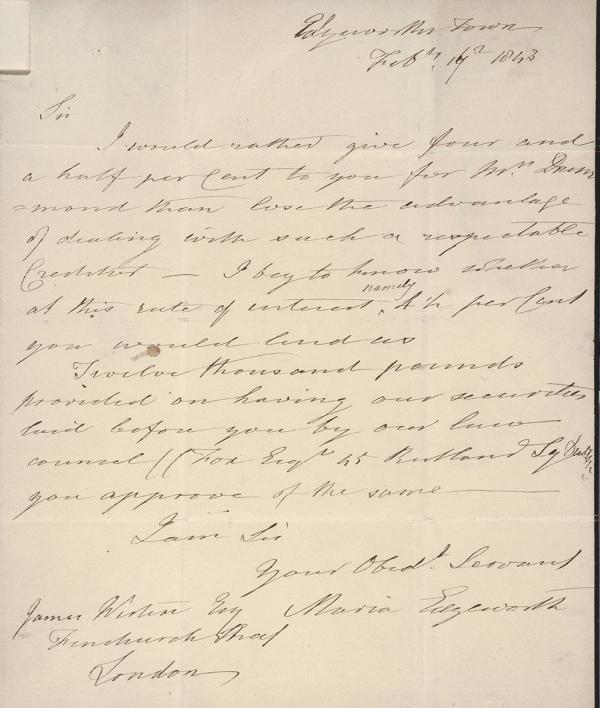 Edgeworths Town
Feby. 19th 1843
Sir
I would rather give four and
a half per Cent to you for Mrs. Drum
=mond than lose the advantage
of dealing with such a respectable
Creditor — I beg to know whether
at this rate of interest, namely 4½ per Cent
you would lend us
Twelve thousand pounds
provided on having our securities
laid before you by our law
counsel ((Fox Esqr 45 Rutland Sq
you approve of the same —
I am Sir
Your Obedt. Servant
James Esq Maria Edgeworth
Fenchurch Street
London